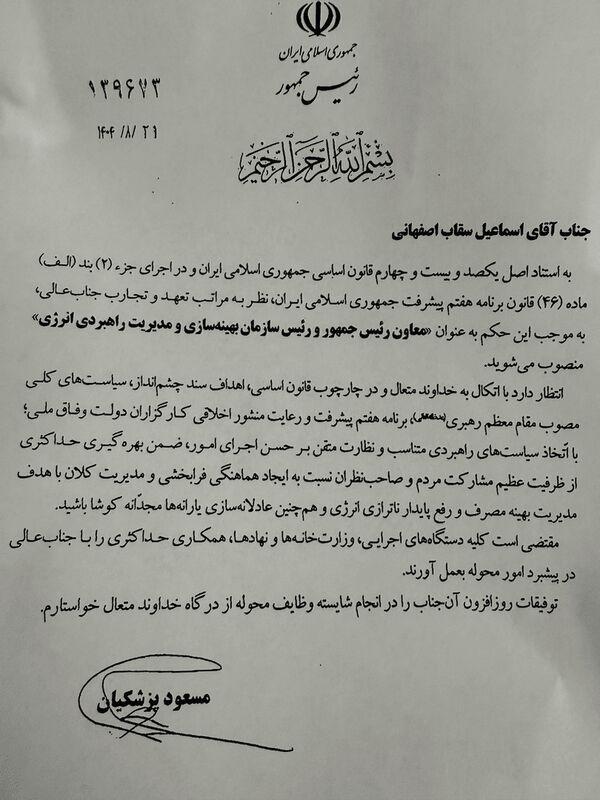 جمهوری اسلامی ایران
رئیس جمهور
۱۳۹۶۷۳
۱۴۰۴/ ۸/ ۲۱
بسم الله الرحمن الرحیم
جناب آقای اسماعیل سقاب اصفهانی
به استناد اصل یکصد و بیست و چهارم قانون اساسی جمهوری اسلامی ایران و در اجرای جزء (۲) بند (الف)
ماده (۴۶) قانون برنامه هفتم پیشرفت جمهوری اسلامی ایران، نظر به مراتب تعهد و تجارب جناب‌عالی،
به موجب این حکم به عنوان «معاون رئیس جمهور و رئیس سازمان بهینه‌سازی و مدیریت راهبردی انرژی»
منصوب می‌شوید.
انتظار دارد با اتکال به خداوند متعال و در چارچوب قانون اساسی، اهداف سند چشم‌انداز، سیاست‌های کلی
مصوب مقام معظم رهبری، برنامه هفتم پیشرفت و رعایت منشور اخلاقی کارگزاران دولت وفاق ملی؛
با اتّخاذ سیاست‌های راهبردی متناسب و نظارت متقن بر حسن اجرای امور، ضمن بهره گیری حداکثری
از ظرفیت عظیم مشارکت مردم و صاحب‌نظران نسبت به ایجاد هماهنگی فرابخشی و مدیریت کلان با هدف
مدیریت بهینه مصرف و رفع پایدار ناترازی انرژی و هم‌چنین عادلانه‌سازی یارانه‌ها مجدّانه کوشا باشید.
مقتضی است کلیه دستگاه‌های اجرایی، وزارت‌خانه‌ها و نهادها، همکاری حداکثری را با جناب‌عالی
در پیشبرد امور محوله بعمل آورند.
توفیقات روزافزون آن‌جناب را در انجام شایسته وظایف محوله از درگاه خداوند متعال خواستارم.
مسعود پزشکیان